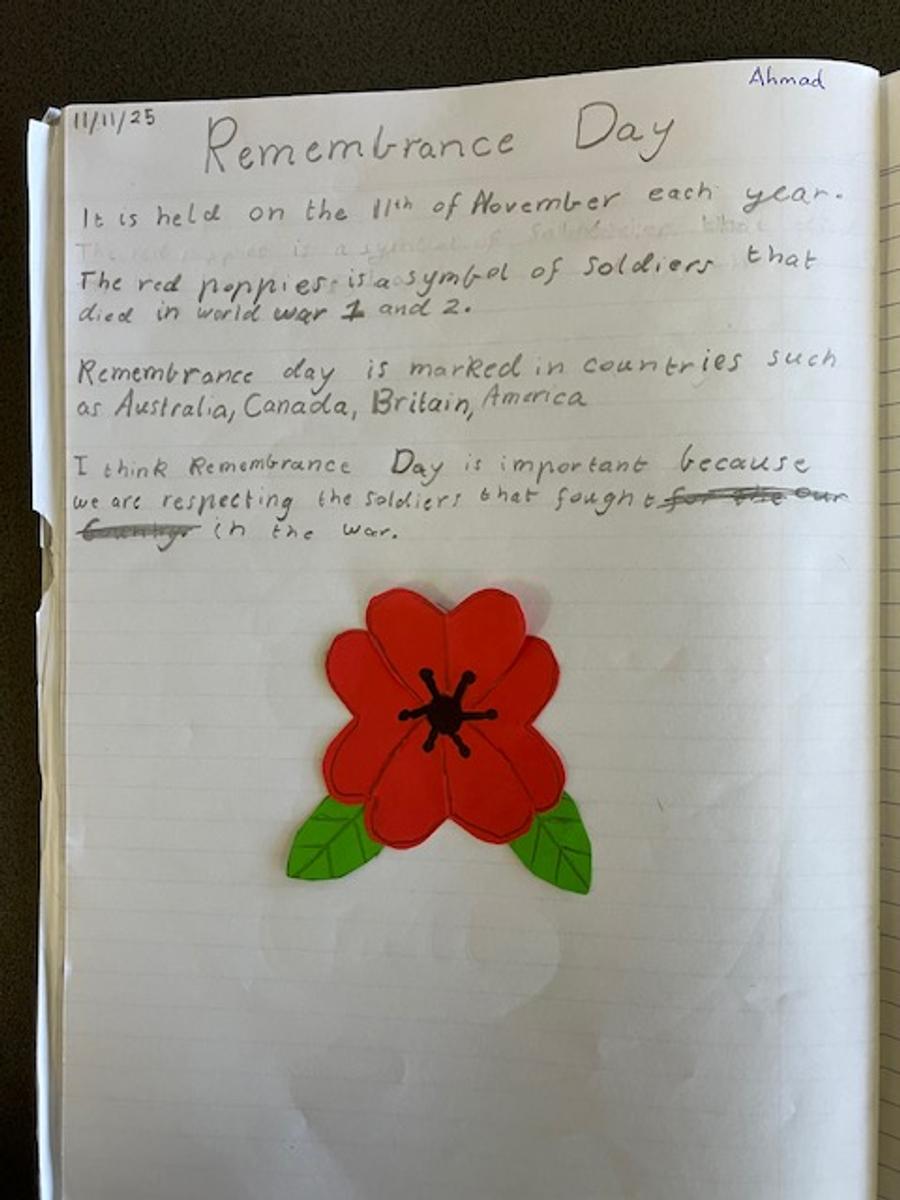 Ahmad
11/11/25
Remembrance Day
It is held on the 11th of November each year.
The red poppies is a symbol of soldiers that
The red poppies is a symbol of soldiers that
died in world war 1 and 2.
Remembrance day is marked in countries such
as Australia, Canada, Britain, America
I think Remembrance Day is important because
we are respecting the soldiers that fought for the our
Country. in the war.